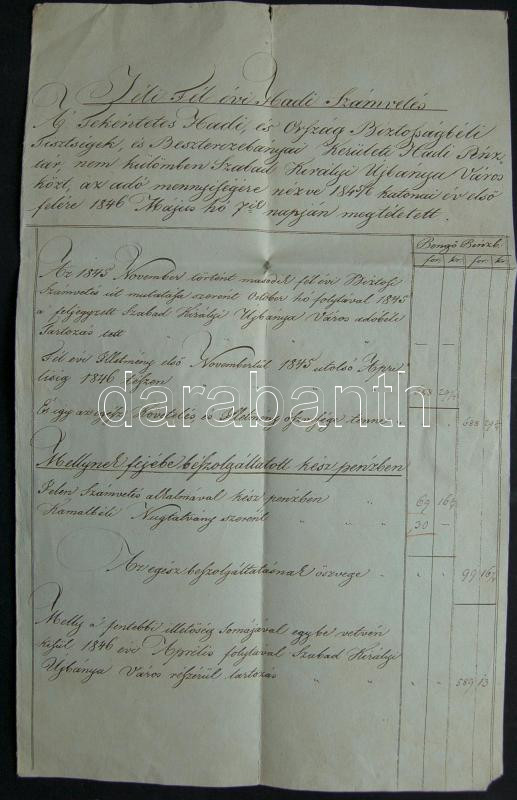 Téli Fél évi Hadi Számvetés
A' Tekéntetes Hadi, és Ország Biztosságbéli
Tisztségek, és Beszterczebányai Kerületi Hadi Pénz-
tár, nem külömben Szabad Királyi Ujbánya Város
közt, az adó mennyiségére nézve 184 5/6 katonai év első
felére 1846 Május hó 7ik napján megtétetett.
Pengő Pénzb.
for. kr. for. kr.
Az 1845 November történt második fél évi Biztosi
Számvetés út mutatása szerént October hó folytával 1845
a feljegyzett Szabad Királyi Ujbánya Város adóbeli
Tartozás tett " " " — —
Fél évi Illetmény első Novembertül 1845 utolsó Apri-
lisig 1846 tészen " "
És igy az egész és Illetmény tenne 688 29
Mellynek fejébe bészolgáltatott kész pénzben
Jelen Számvetés alkalmával kész pénzben " " 69 16
Nugtatvány szerént " " 30 —
Az egész beszolgáltatásnak öszvege " " 99 16
Melly a' fentebbi illetőség somájával egybe vetvén
kisül, 1846 évi Aprilis folytával Szabad Királyi
Ujbánya Város részérül tartozás " " 589 13
darabanth